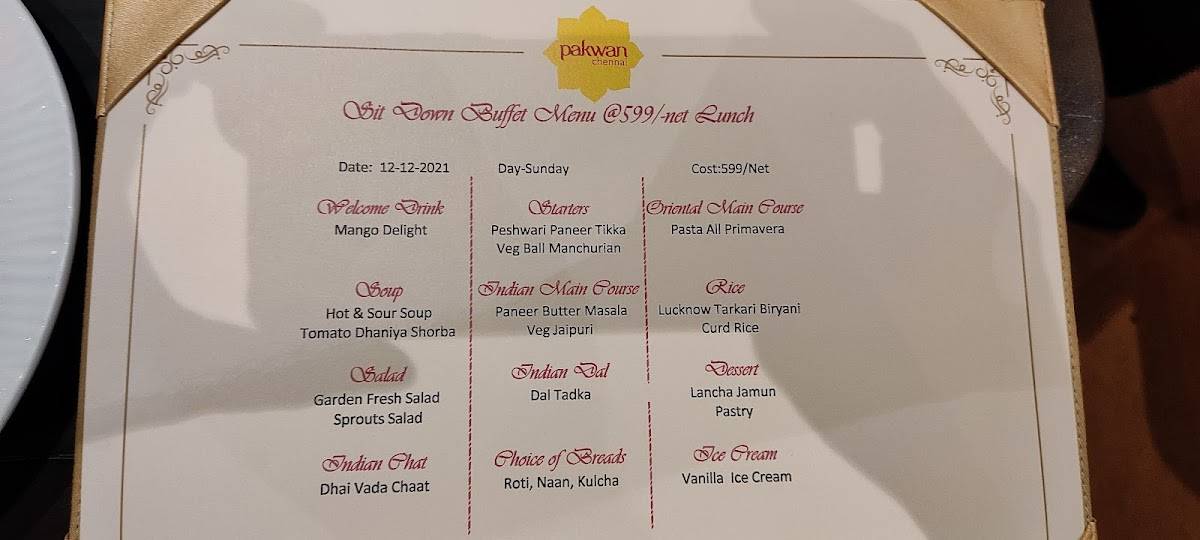 pakwan
chennai
Sit Down Buffet Menu @599/-net Lunch
Date: 12-12-2021 Day-Sunday Cost:599/Net
Welcome Drink
Mango Delight
Starters
Peshwari Paneer Tikka
Veg Ball Manchurian
Oriental Main Course
Pasta All Primavera
Soup
Hot & Sour Soup
Tomato Dhaniya Shorba
Indian Main Course
Paneer Butter Masala
Veg Jaipuri
Rice
Lucknow Tarkari Biryani
Curd Rice
Salad
Garden Fresh Salad
Sprouts Salad
Indian Dal
Dal Tadka
Dessert
Lancha Jamun
Pastry
Indian Chat
Dhai Vada Chaat
Choice of Breads
Roti, Naan, Kulcha
Ice Cream
Vanilla Ice Cream